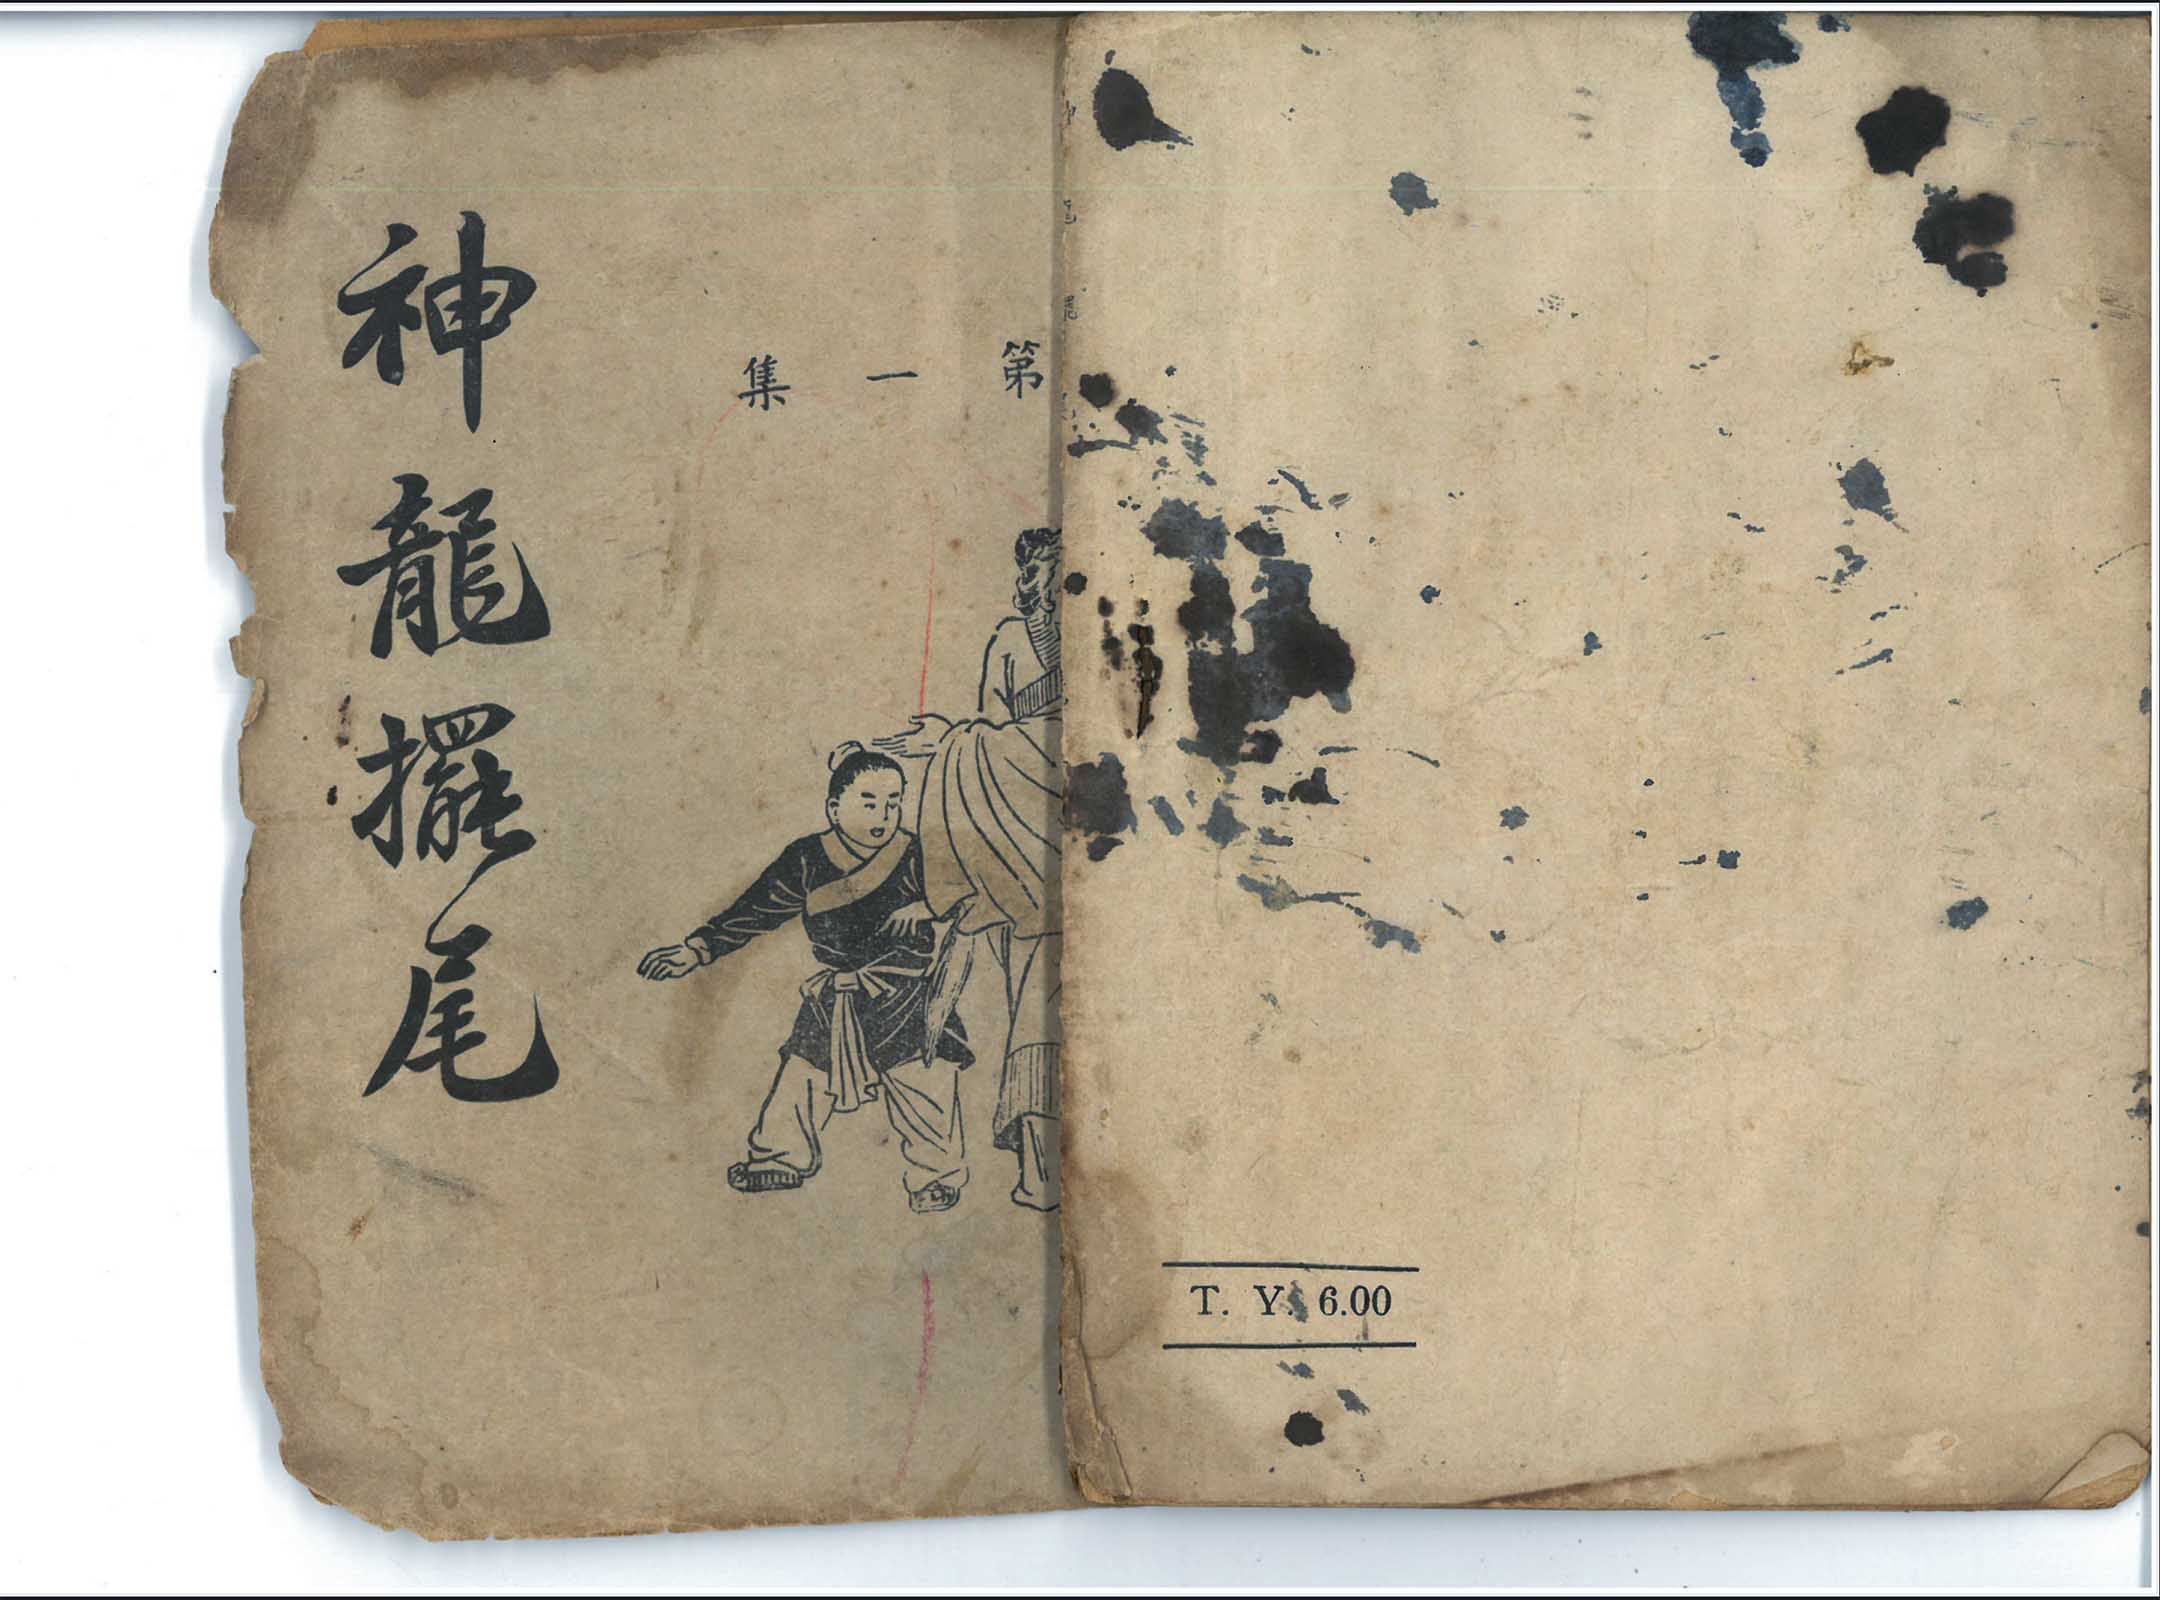 神龍擺尾
第一集
T. Y. 6.00